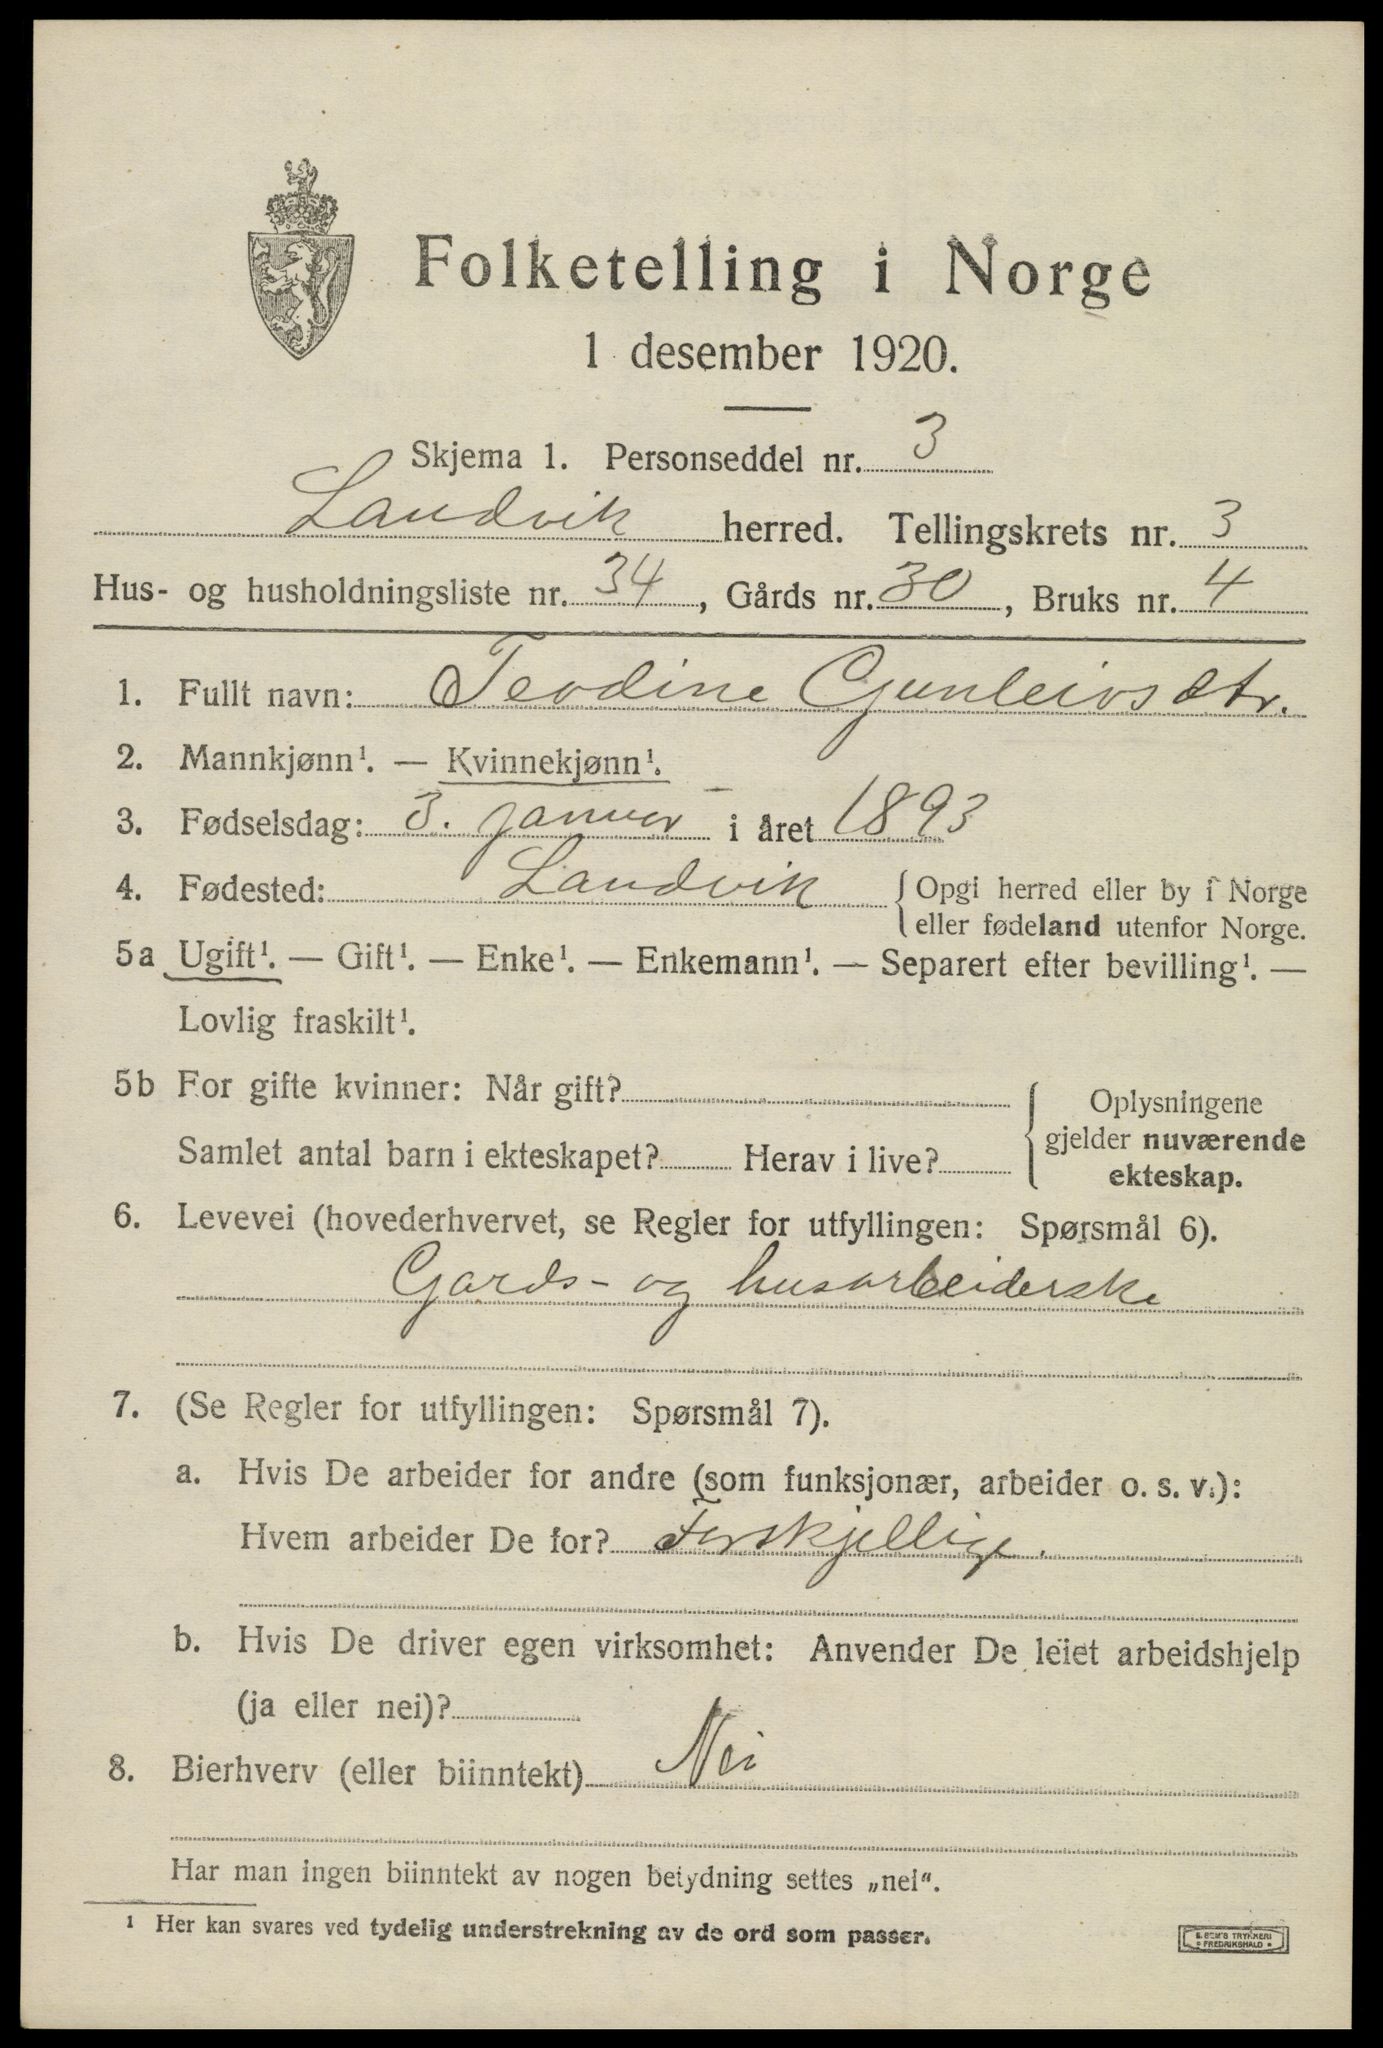 Folketelling i Norge
1 desember 1920.
Skjema 1. Personseddel nr. 3
Landvik herred. Tellingskrets nr. 3
Hus- og husholdningsliste nr. 34, Gårds nr. 30, Bruks nr. 4
1. Fullt navn: Teodine Gunleivsdtr.
2. Mannkjønn¹. — Kvinnekjønn¹.
3. Fødselsdag: 3. januar i året 1893
4. Fødested: Landvik { Opgi herred eller by i Norge
eller fødeland utenfor Norge.
5a Ugift¹. — Gift¹. — Enke¹. — Enkemann¹. — Separert efter bevilling¹. —
Lovlig fraskilt¹.
5b For gifte kvinner: Når gift?
Samlet antal barn i ekteskapet? Herav i live?
{ Oplysningene
gjelder nuværende
ekteskap.
6. Levevei (hovederhvervet, se Regler for utfyllingen: Spørsmål 6).
Gards- og husarbeiderske
7. (Se Regler for utfyllingen: Spørsmål 7).
a. Hvis De arbeider for andre (som funksjonær, arbeider o. s. v.):
Hvem arbeider De for? Forskjellige.
b. Hvis De driver egen virksomhet: Anvender De leiet arbeidshjelp
(ja eller nei)?
8. Bierhverv (eller biinntekt) Nei
Har man ingen biinntekt av nogen betydning settes „nei“.
¹ Her kan svares ved tydelig understrekning av de ord som passer.
E. SEM'S TRYKKERI
• FREDRIKSHALD •